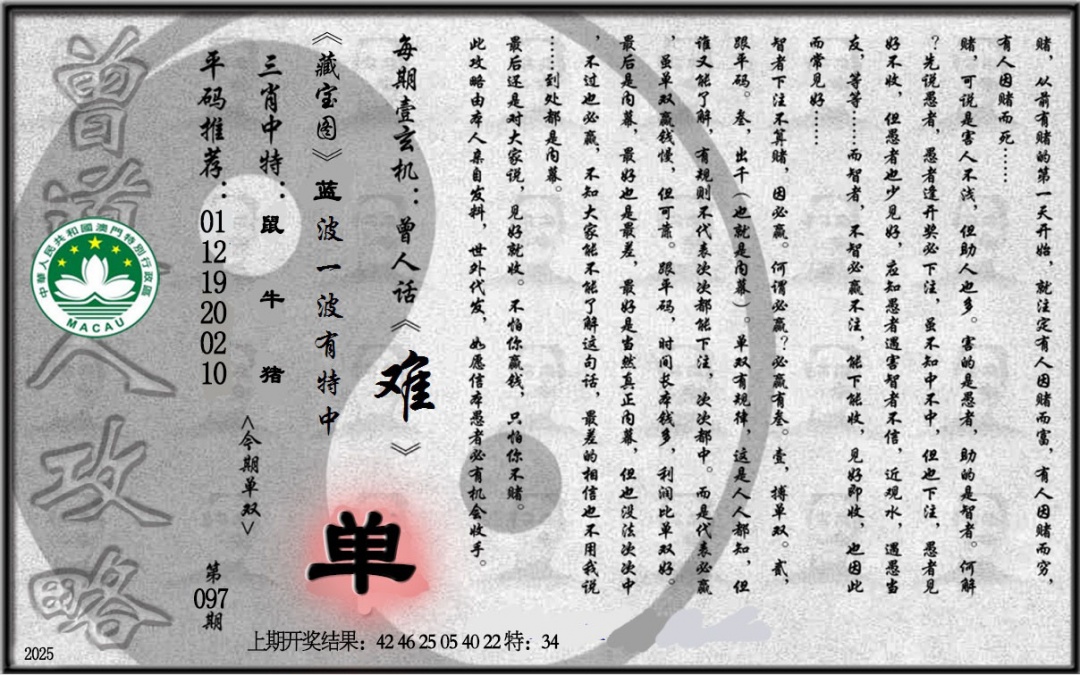 赌，从前有赌的第一天开始，就注定有人因赌而富，有人因赌而穷，
有人因赌而死……
赌，可说是害人不浅，但助人也多。害的是愚者，助的是智者。何解
？先说愚者，愚者逢开奖必下注，虽不知中不中，但也下注，愚者见
好不收，但愚者也少见好，应知愚者遇害智者不信，近观水，遇愚当
友，等等……而智者，不智必赢不注，能下能收，见好即收，也因此
而常见好……
智者下注不算赌，因必赢。何谓必赢？必赢有叁。壹，搏单双。贰，
跟平码。叁，出千（也就是内幕）。单双有规律，这是人人都知，但
谁又能了解，有规则不代表次次都能下注，次次都中。而是代表必赢
，虽单双赢钱慢，但可靠。跟平码，时间长本钱多，利润比单双好。
最后是内幕，最好也是最差，最好是当然真正内幕，但也没法次次中
，不过也必赢，不知大家能不能了解这句话，最差的相信也不用我说
……到处都是内幕。
最后还是对大家说，见好就收。不怕你赢钱，只怕你不赌。
此攻略由本人亲自发料，世外代发，如愿信本愚者必有机会收手。
每期壹玄机：曾人话《难》
《藏宝图》蓝波一波有特中
单
三肖中特：鼠 牛 猪
<今期单双>
平码推荐：01 12 19 20 02 10
第097期
曾道人攻略
中華人民共和國澳門特別行政區
MACAU
上期开奖结果：42 46 25 05 40 22 特：34
2025